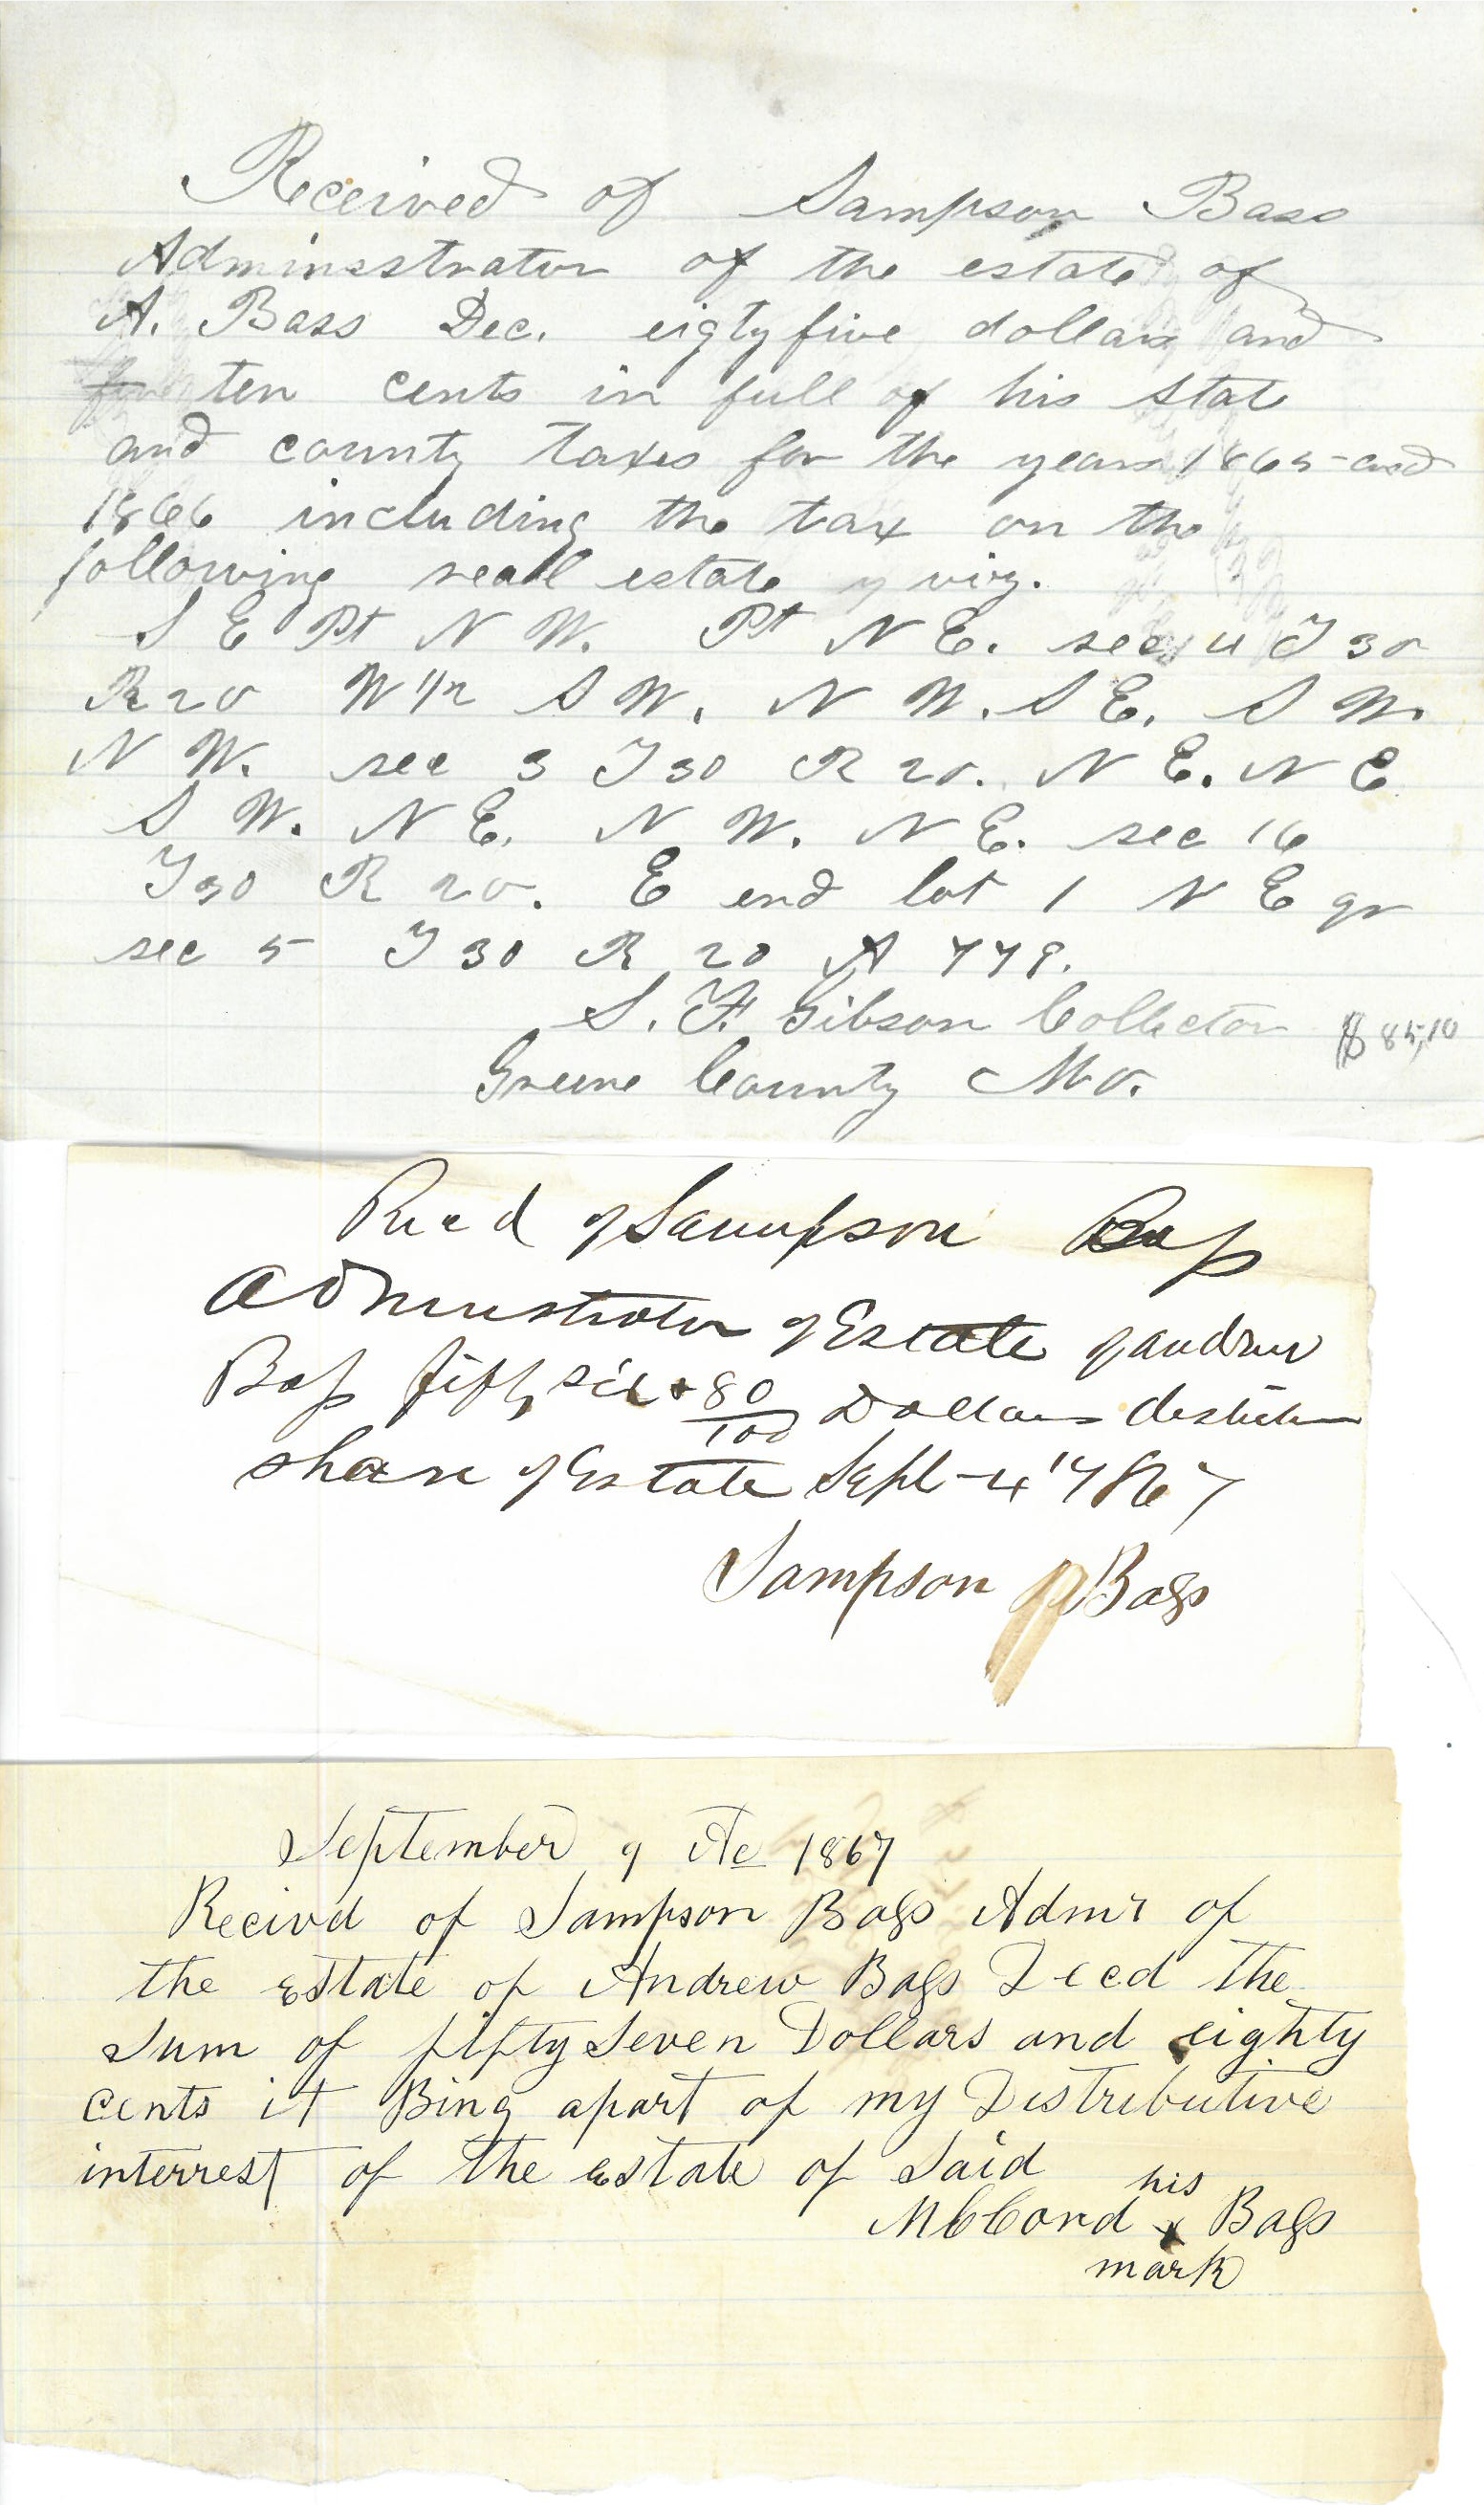 Received of Sampson Bass
Adminsstrator of the estate of
A. Bass Dec. eigty five dollars and
ten cents in full of his State
and county taxes for the years 1865 and
1866 including the tax on the
following reall estate viz.
S E Pt N W. Pt N E. sec 4 T 30
R 20 W 1/2 S W. N W. S E. S W.
N W. sec 3 T 30 R 20. N E. N E
S W. N E. N W. N E. sec 16
T 30 R 20. E end lot 1 N E qr
sec 5 T 30 R 20 A 779.
S. F. Gibson Collector $ 85,10
Greene County Mo.
Recd of Sampson Bass
Administrator of Estate of Andrew
Bass fifty six & 80/100 Dollars
share of Estate Sept 4 1867
Sampson Bass
September 9 the 1867
Recivd of Sampson Bass Admr of
the Estate of Andrew Bass Decd the
Sum of fifty Seven Dollars and eighty
cents it Bing apart of my Distributive
interrest of the Estate of Said
his
McCord x Bass
mark